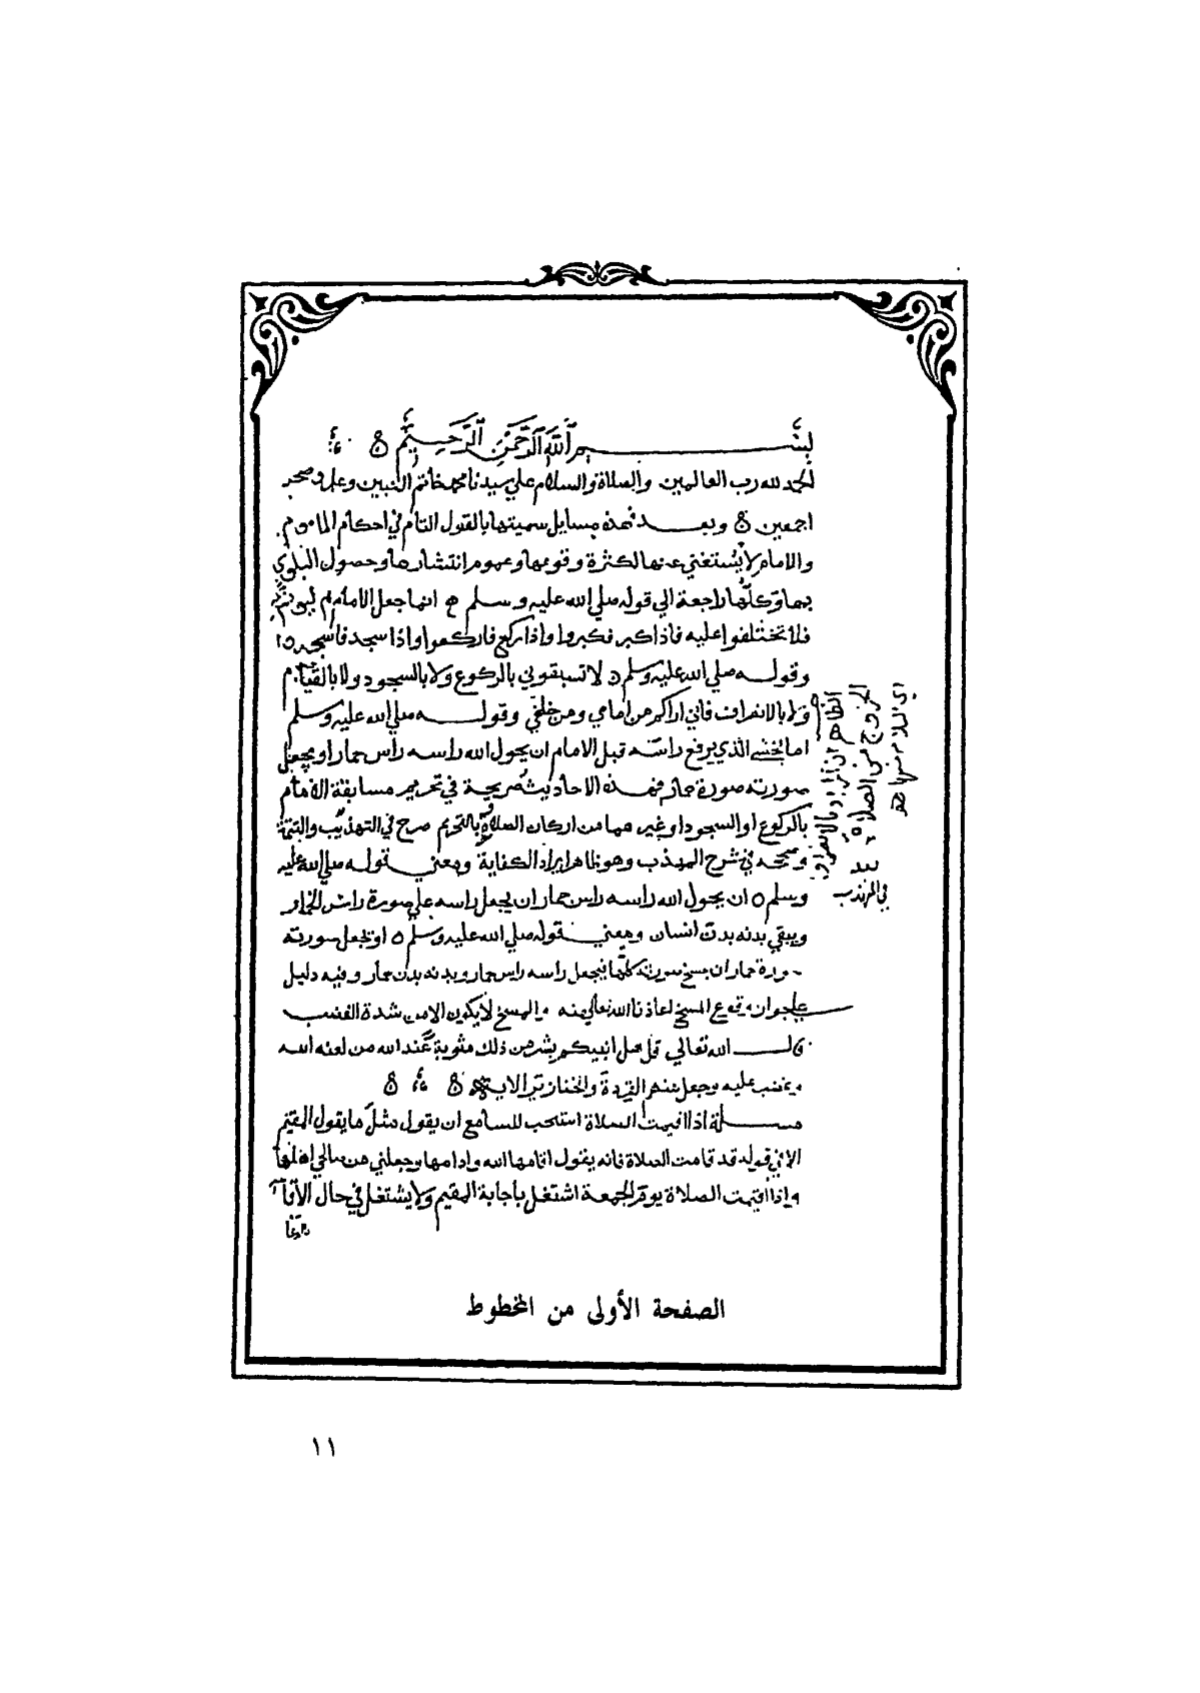 بسم الله الرحمن الرحيم
الحمد لله رب العالمين والصلاة والسلام علي سيدنا محمد خاتم النبين وعلي اله وصحبه
اجمعين وبعد فهذه مسايل سميتها بالقول التام في احكام الماموم
والامام لا يستغني عنها لكثرة وقوعها وعموم انتشارها وحصول البلوي
بها وكلها راجعة الي قوله صلي الله عليه وسلم انما جعل الامام ليوتم به
فلا تختلفوا عليه فاذا كبر فكبروا واذا ركع فاركعوا واذا سجد فاسجدوا
وقوله صلي الله عليه وسلم لا تسبقوني بالركوع ولا بالسجود ولا بالقيام
ولا بالانصراف فاني اراكم من امامي ومن خلفي وقوله صلي الله عليه وسلم
اما يخشي الذي يرفع راسه قبل الامام ان يحول الله راسه راس حمار او يجعل
صورته صورة حمار فهذه الاحاديث صريحة في تحريم مسابقة الامام
بالركوع او السجود او غيرهما من اركان الصلاة بالتحريم صرح في التهذيب والتتمة
وصححه في شرح المهذب وهو ظاهر ايراد الكفاية ومعني قوله صلي الله عليه
وسلم ان يحول الله راسه راس حمار ان يجعل راسه علي صورة راس الحمار
ويبقي بدنه بدن انسان ومعني قوله صلي الله عليه وسلم او يجعل صورته
صورة حمار ان يمسخ صورته كلها فيجعل راسه راس حمار وبدنه بدن حمار وفيه دليل
علي جواز وقوع المسخ اعاذنا الله تعالي منه والمسخ لا يكون الا من شدة الغضب
قال الله تعالي قل هل انبيكم بشر من ذلك مثوبة عند الله من لعنه الله
وغضب عليه وجعل منهم القردة والخنازير الاية
مسئلة اذا اقيمت الصلاة استحب للسامع ان يقول مثل ما يقول المقيم
الا في قوله قد قامت الصلاة فانه يقول اقامها الله وادامها وجعلني من صالحي اهلها
واذا اقيمت الصلاة يوم الجمعة اشتغل باجابة المقيم ولا يشتغل في حال الاقامة
الظاهر ان المراد بالانصراف
الخروج من الصلاة
اي السلام منها
في المهذب
الصفحة الأولى من المخطوط
١١